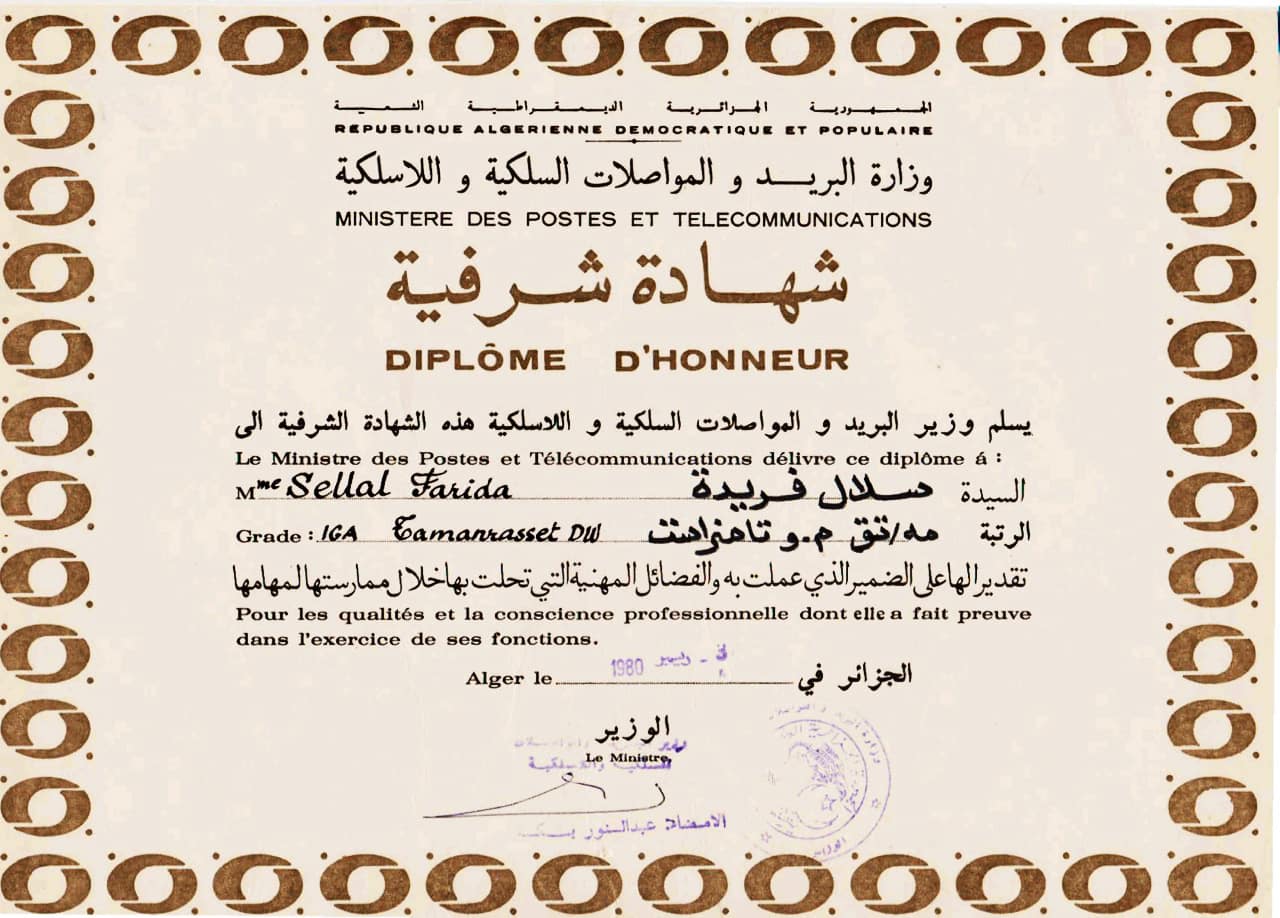 الجمهورية الجزائرية الديمقراطية الشعبية
REPUBLIQUE ALGERIENNE DEMOCRATIQUE ET POPULAIRE
وزارة البريد و المواصلات السلكية و اللاسلكية
MINISTERE DES POSTES ET TELECOMMUNICATIONS
شهادة شرفية
DIPLÔME D'HONNEUR
يسلم وزير البريد و المواصلات السلكية و اللاسلكية هذه الشهادة الشرفية الى
Le Ministre des Postes et Télécommunications délivre ce diplôme á :
السيدة سلال فريدة
Mme Sellal Farida
الرتبة مه/تق م.و تامنراست
Grade : IGA Tamanrasset DW
تقديرا لها على الضمير الذي عملت به والفضائل المهنية التي تحلت بها خلال ممارستها لمهامها
Pour les qualités et la conscience professionnelle dont elle a fait preuve
dans l'exercice de ses fonctions.
الجزائر في 3 - ديسمبر 1980
Alger le
الوزير
Le Ministre,
وزير البريد والمواصلات
السلكية واللاسلكية
الامضاء: عبدالنور